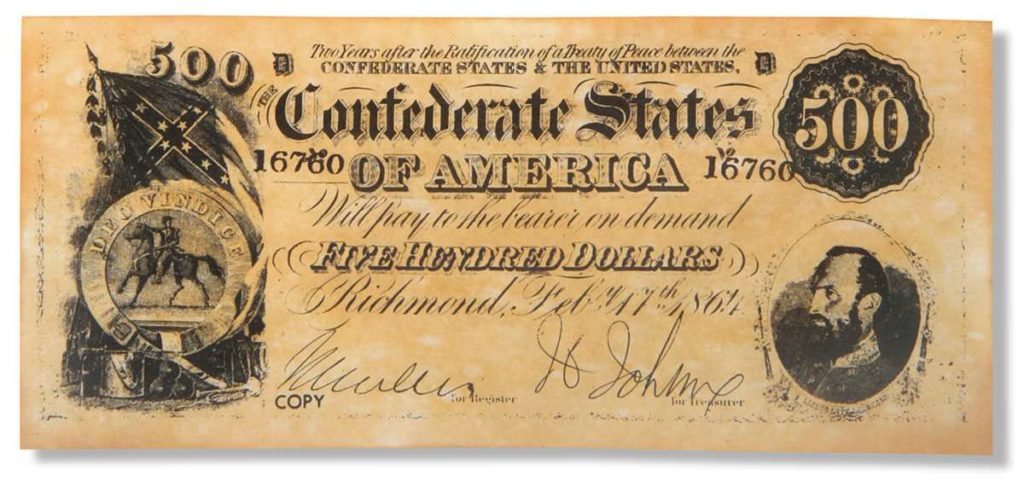 500 D Two Years after the Ratification of a Treaty of Peace between the D
CONFEDERATE STATES & THE UNITED STATES,
THE
Confederate States
500
16760 OF AMERICA 16760
Will pay to the bearer on demand
DEO VINDICE
FIVE HUNDRED DOLLARS
Richmond, Feby. 17th 1864
COPY for Register for Treasurer